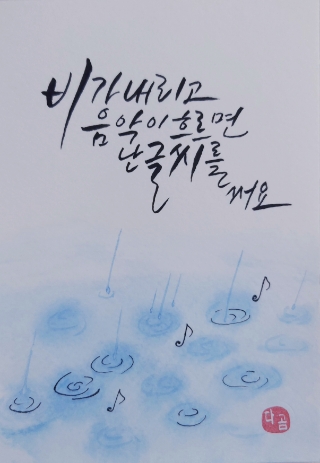 비가 내리고
음악이 흐르면
난 글씨를
써요
다곰